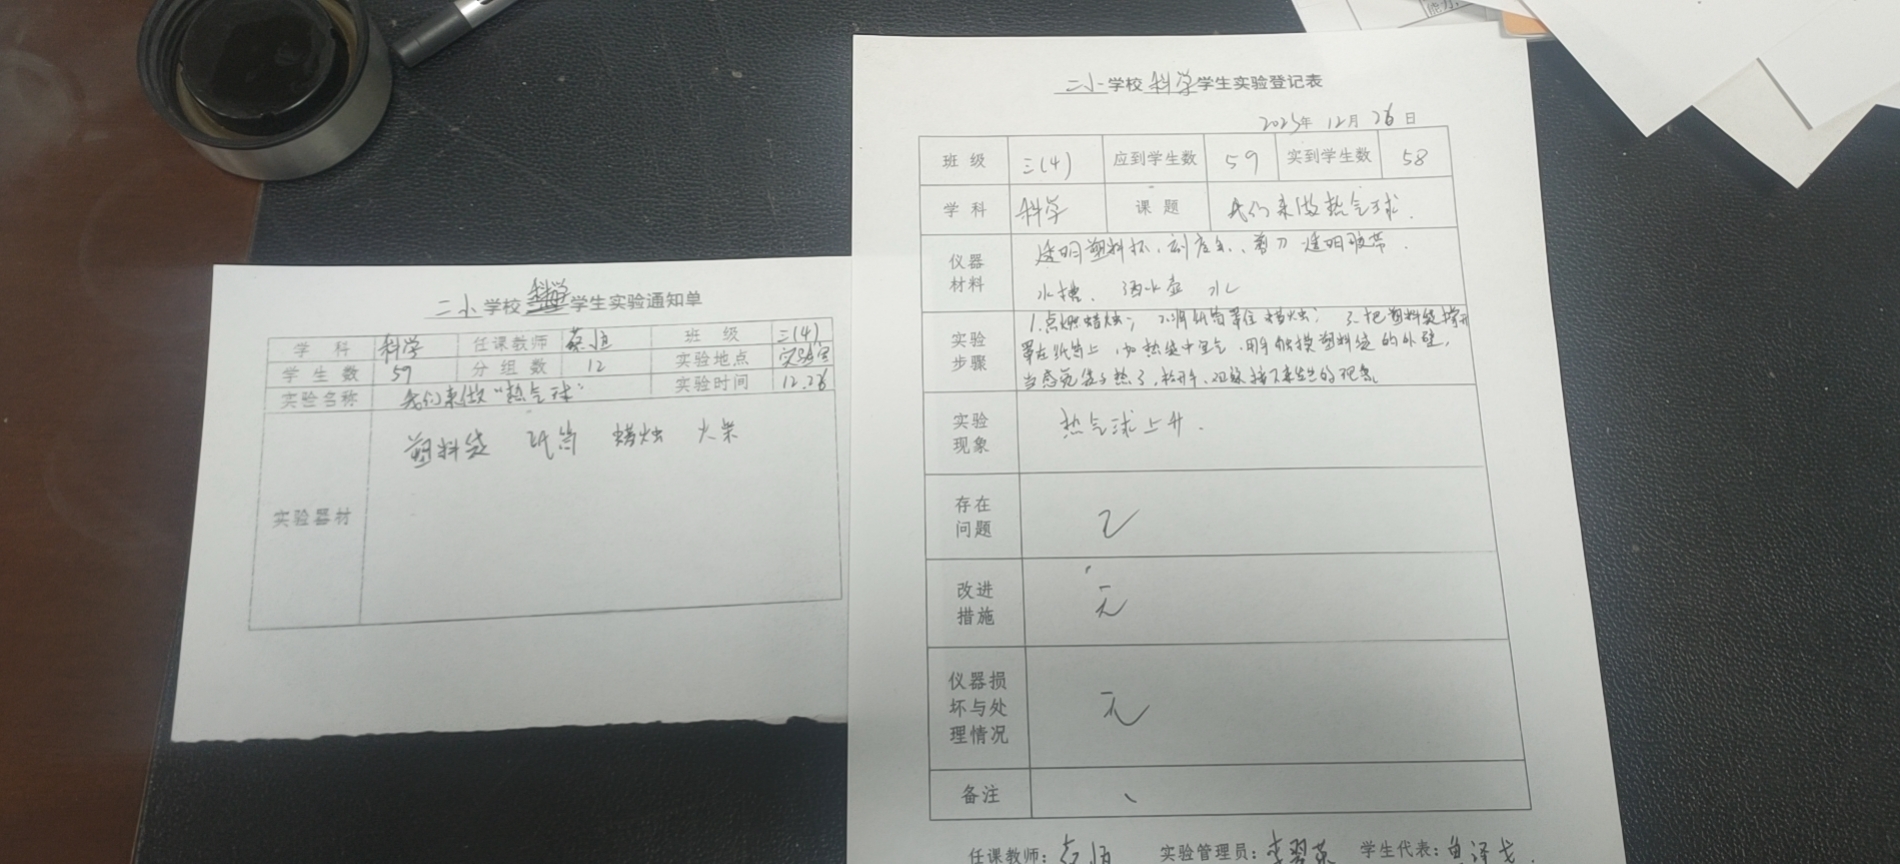 二小学校科学学生实验通知单
学科 科学 任课教师 班级 三(4)
学生数 59 分组数 12 实验地点 实验室
实验名称 我们来做“热气球” 实验时间 12.26
实验器材 塑料袋 纸筒 蜡烛 火柴
二小学校科学学生实验登记表
2025年 12月 26日
班级 三(4) 应到学生数 59 实到学生数 58
学科 科学 课题 我们来做热气球.
仪器材料 透明塑料杯、刻度条、剪刀 透明胶带.
水槽、洒水壶 水
实验步骤 1.点燃蜡烛; 2.用纸筒罩住蜡烛; 3.把塑料袋撑开
罩在纸筒上,加热袋中空气,用手触摸塑料袋的外壁,
当感觉袋子热了,松开手,观察接下来发生的现象
实验现象 热气球上升.
存在问题
改进措施 无
仪器损坏与处理情况 无
备注 、
任课教师: 实验管理员: 学生代表: